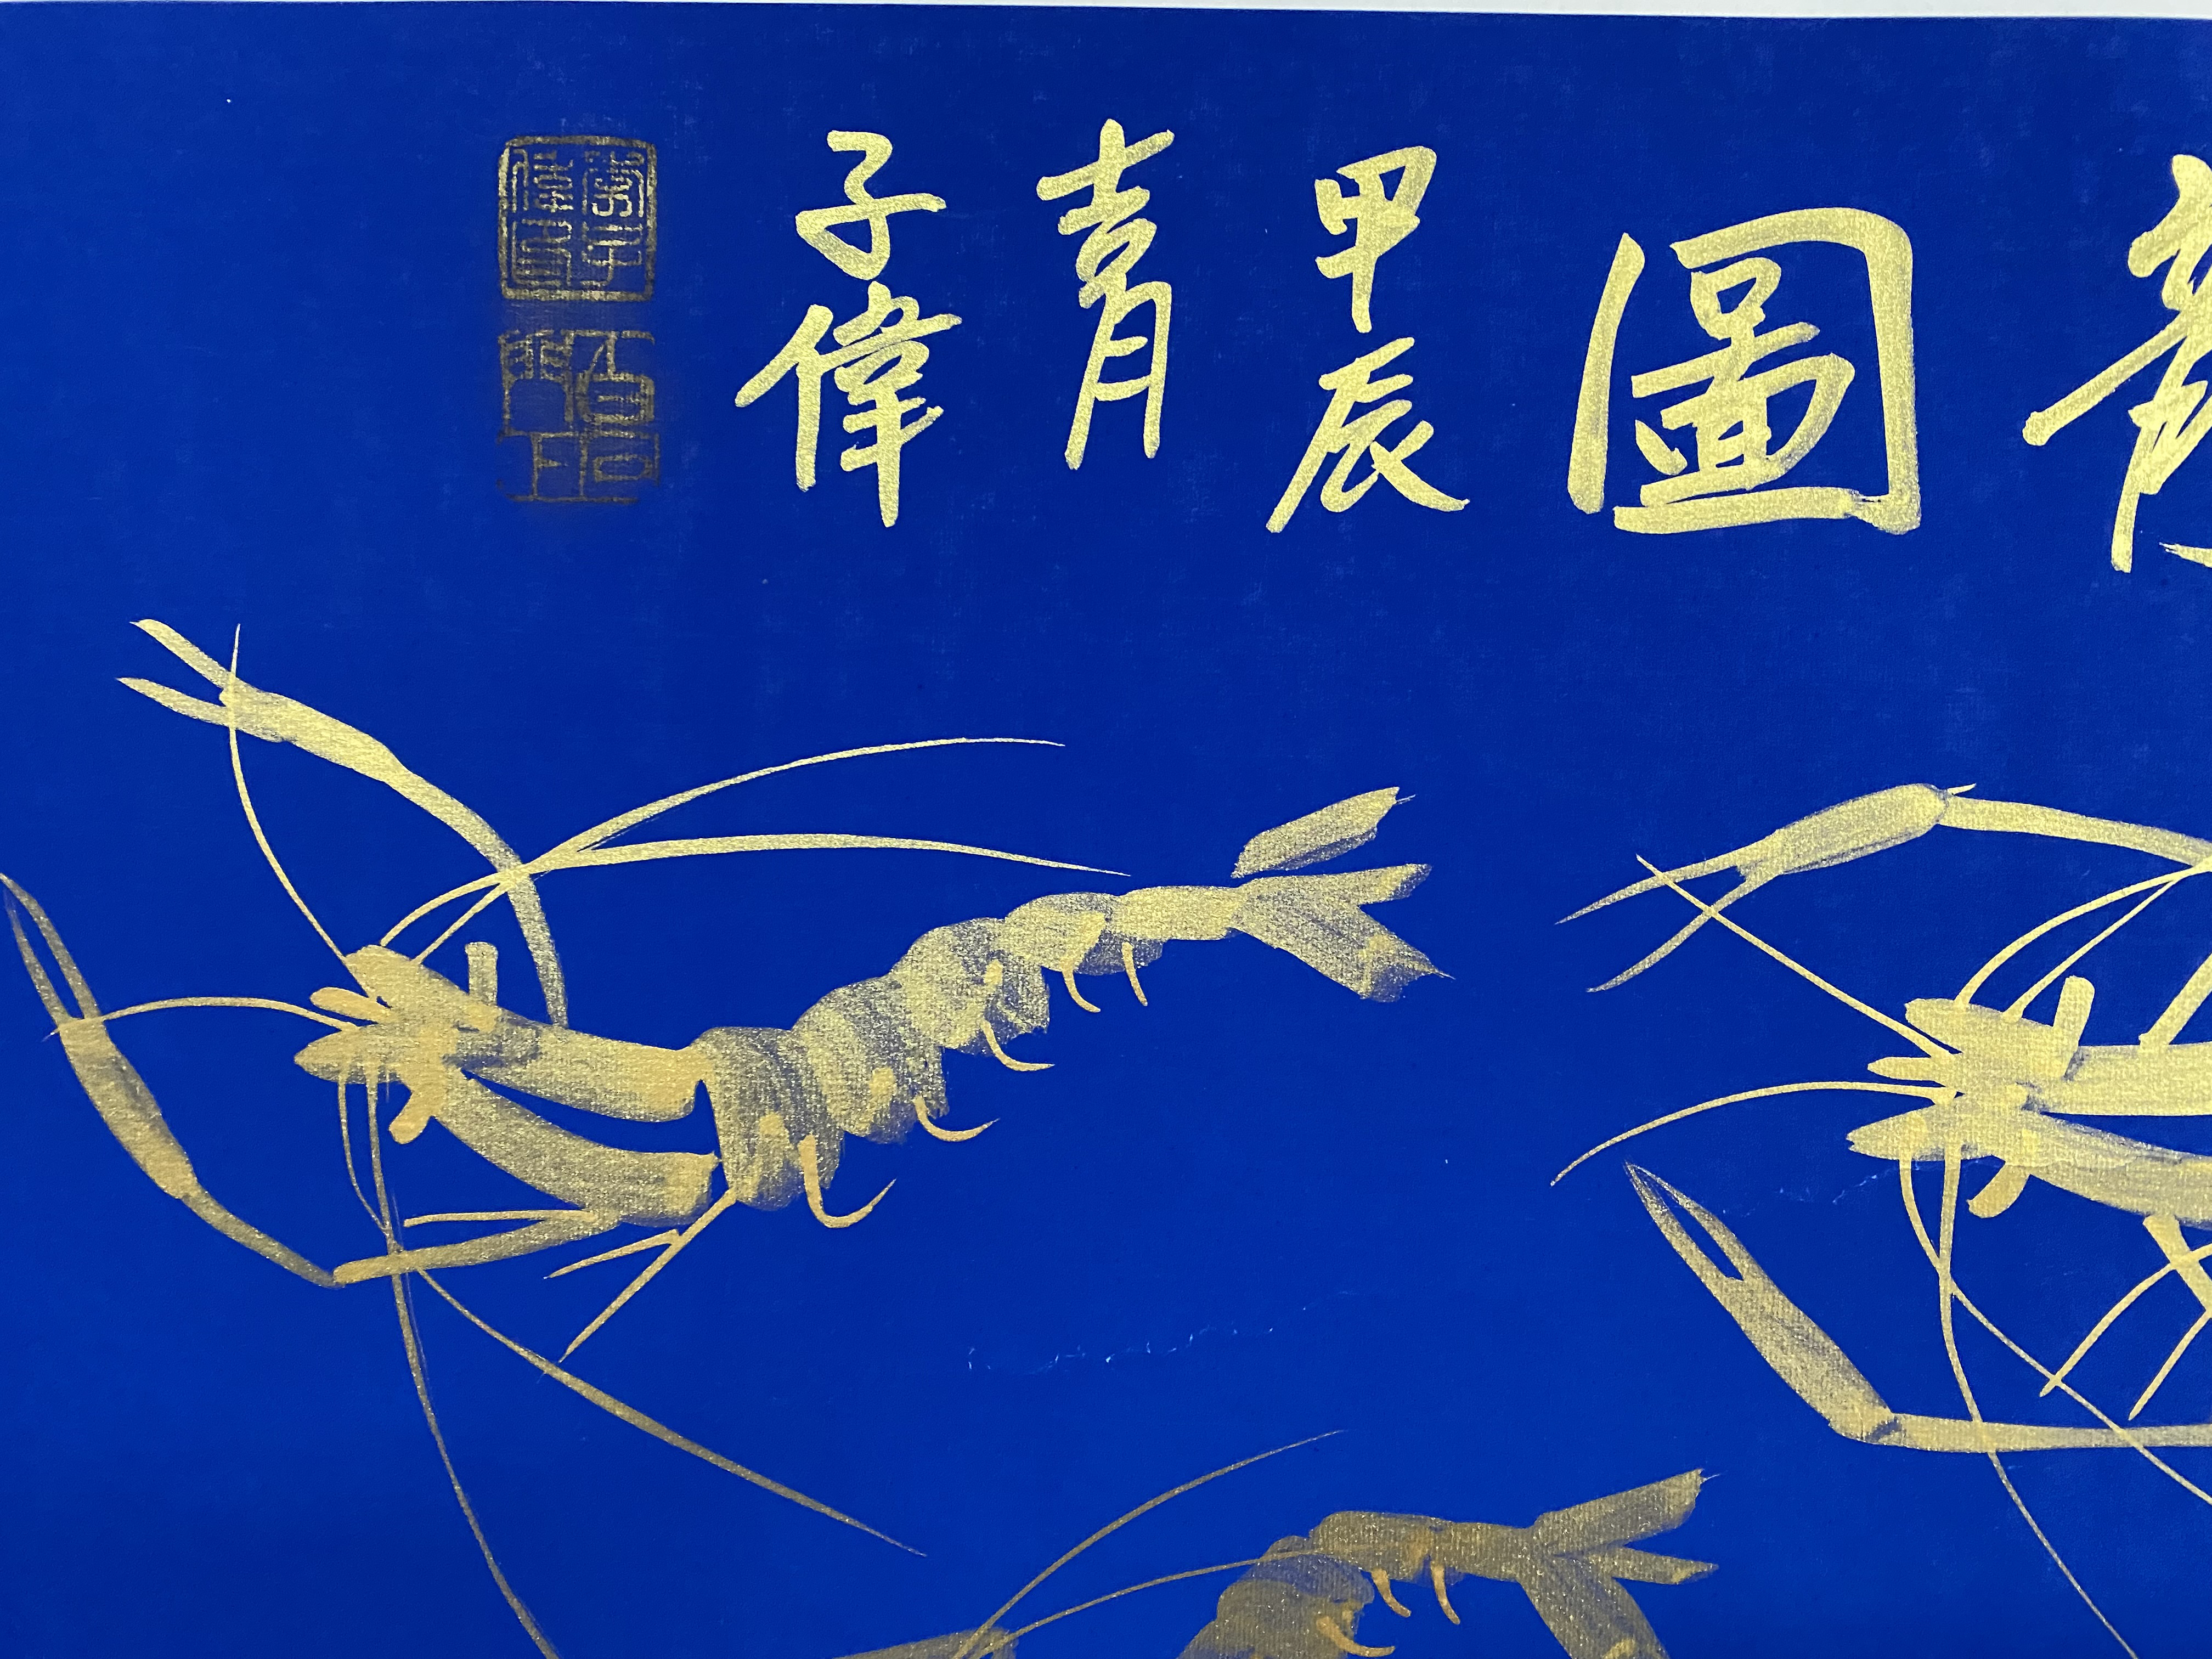 圖
甲辰
吉月
子偉